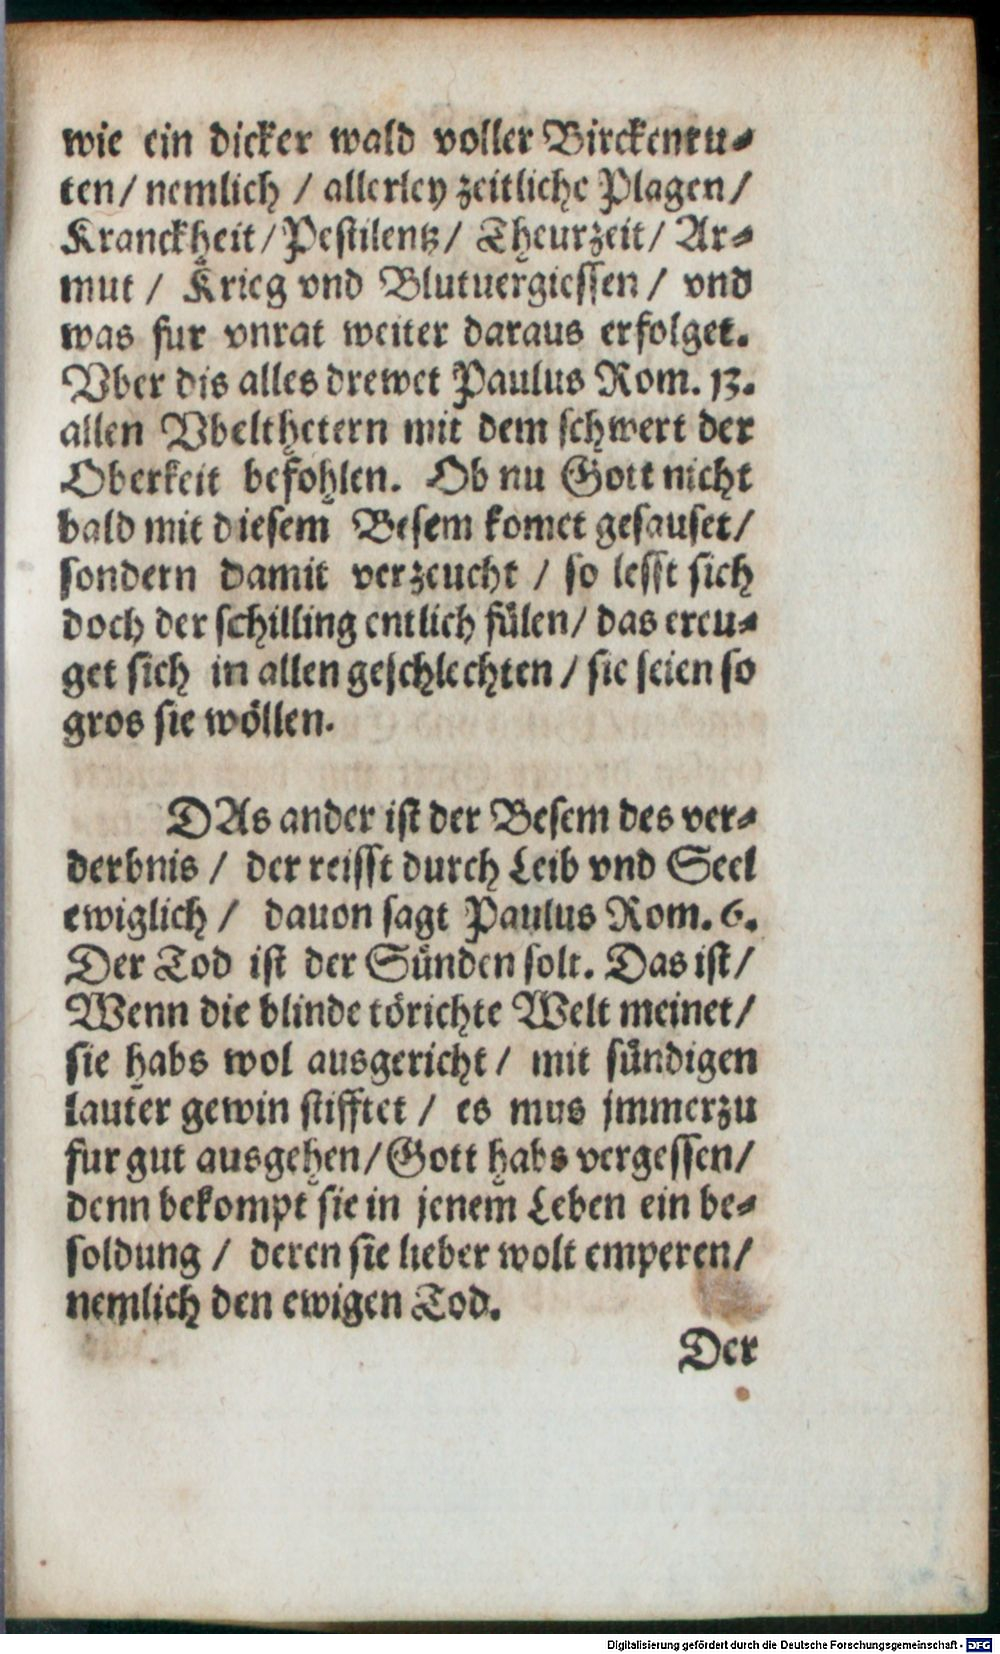 wie ein dicker wald voller Birckenru⸗
ten/ nemlich / allerley zeitliche Plagen/
Kranckheit/ Pestilentz/ Theurzeit/ Ar⸗
mut / Krieg vnd Blutuergiessen / vnd
was fur vnrat weiter daraus erfolget.
Vber dis alles drewet Paulus Rom. 13.
allen Vbelthetern mit dem schwert der
Oberkeit befohlen. Ob nu Gott nicht
bald mit diesem Besem komet gesauset/
sondern damit verzeucht / so lesst sich
doch der schilling entlich fülen/ das ereu⸗
get sich in allen geschlechten / sie seien so
gros sie wöllen.
DAs ander ist der Besem des ver⸗
derbnis / der reisst durch Leib vnd Seel
ewiglich / dauon sagt Paulus Rom. 6.
Der Tod ist der Sünden solt. Das ist/
Wenn die blinde törichte Welt meinet/
sie habs wol ausgericht / mit sündigen
lauter gewin stifftet / es mus jmmerzu
fur gut ausgehen/ Gott habs vergessen/
denn bekompt sie in jenem Leben ein be⸗
soldung / deren sie lieber wolt emperen/
nemlich den ewigen Tod.
Der
Digitalisierung gefördert durch die Deutsche Forschungsgemeinschaft - DFG